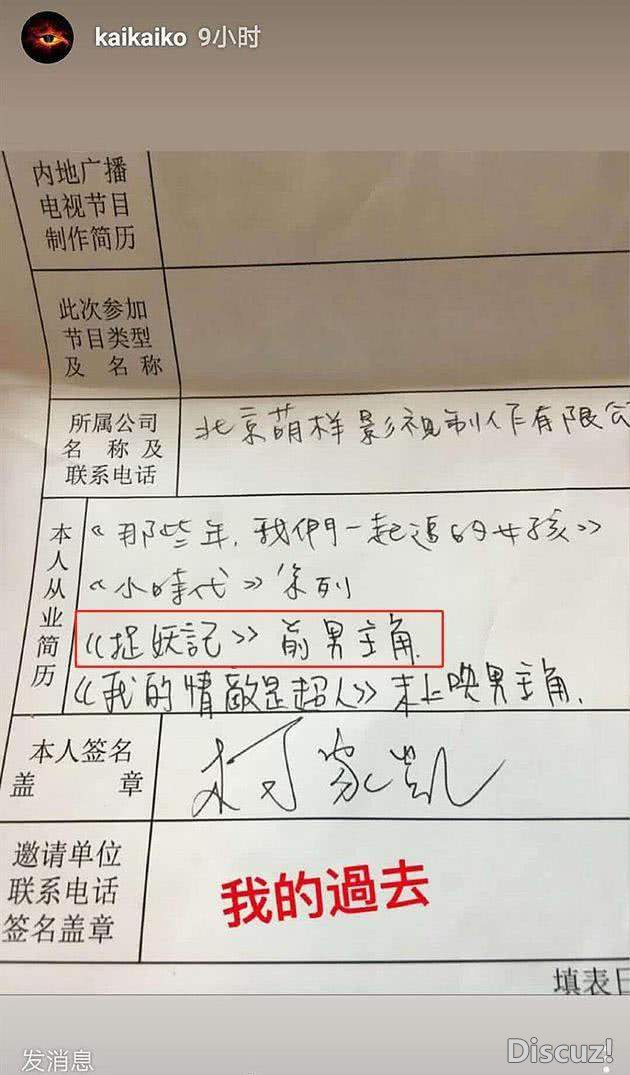 kaikaiko 9小时
内地广播
电视节目
制作简历
此次参加
节目类型
及 名 称
所属公司
名 称 及
联系电话
北京萌样影视制作有限公
本人从业简历
《那些年,我們一起追的女孩》
《小時代》系列
《捉妖記》前男主角.
《我的情敵是超人》未上映男主角.
本人签名
盖 章
柯家凯
邀请单位
联系电话
签名盖章
我的過去
填表日
发消息
Discuz!